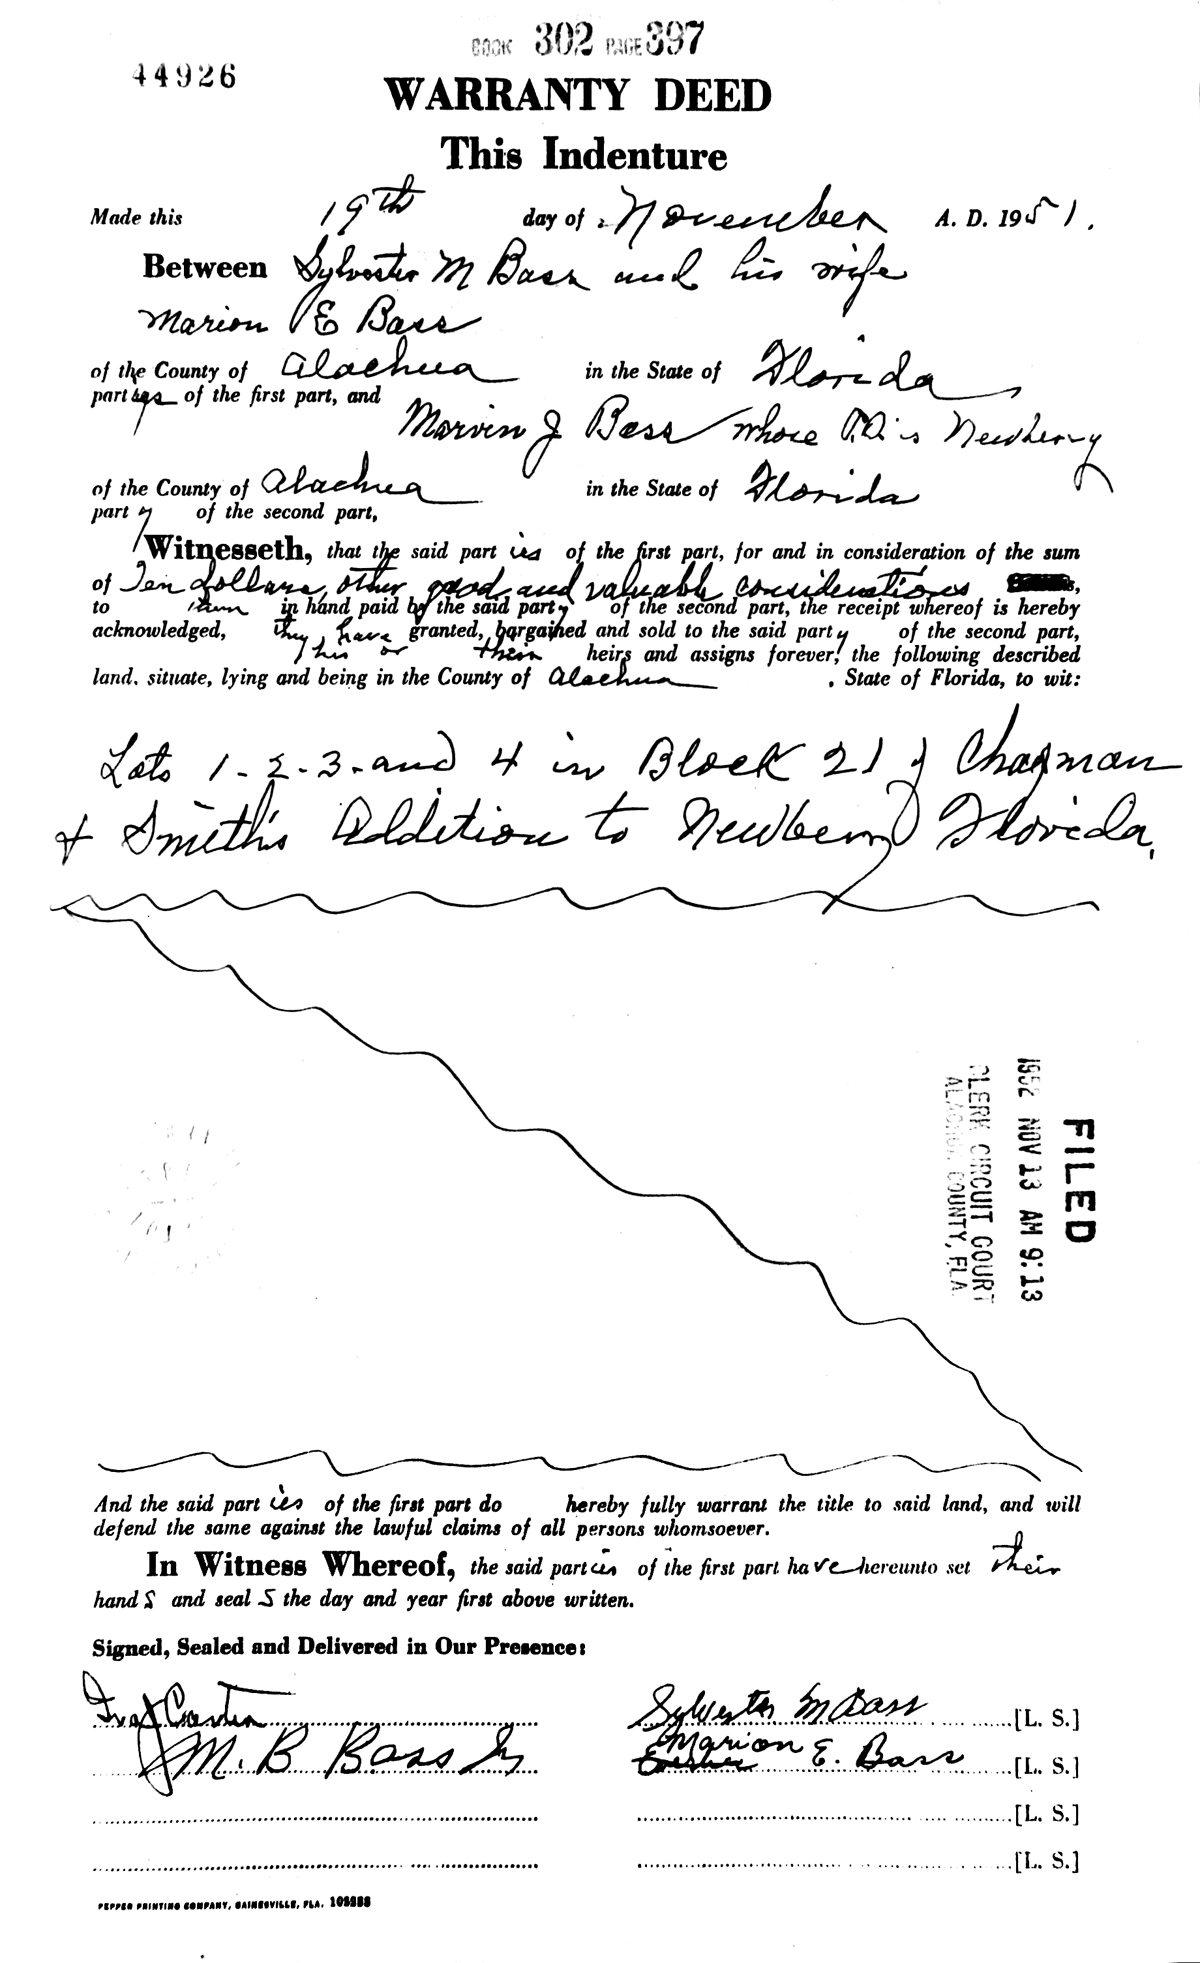 BOOK 302 PAGE 397
44926
WARRANTY DEED
This Indenture
Made this 19th day of November A. D. 1951.
Between Sylvester M Bass and his wife
Marion E Bass
of the County of Alachua in the State of Florida
parties of the first part, and
Marvin J Bass whose P.O. is Newberry
of the County of Alachua in the State of Florida
party of the second part,
Witnesseth, that the said parties of the first part, for and in consideration of the sum
of Ten dollars, other good and valuable considerations
to them in hand paid by the said party of the second part, the receipt whereof is hereby
acknowledged, they have granted, bargained and sold to the said party of the second part,
his or their heirs and assigns forever, the following described
land, situate, lying and being in the County of Alachua, State of Florida, to wit:
Lots 1-2-3-and 4 in Block 21 of Chapman
& Smith's Addition to Newberry Florida.
FILED
1952 NOV 13 AM 9:13
CLERK CIRCUIT COURT
ALACHUA COUNTY, FLA.
And the said parties of the first part do hereby fully warrant the title to said land, and will
defend the same against the lawful claims of all persons whomsoever.
In Witness Whereof, the said parties of the first part have hereunto set their
hands and seals the day and year first above written.
Signed, Sealed and Delivered in Our Presence:
Ira J Carter Sylvester M Bass [L. S.]
M. B Bass Jr Marion E. Bass [L. S.]
[L. S.]
[L. S.]
PEPPER PRINTING COMPANY, GAINESVILLE, FLA.